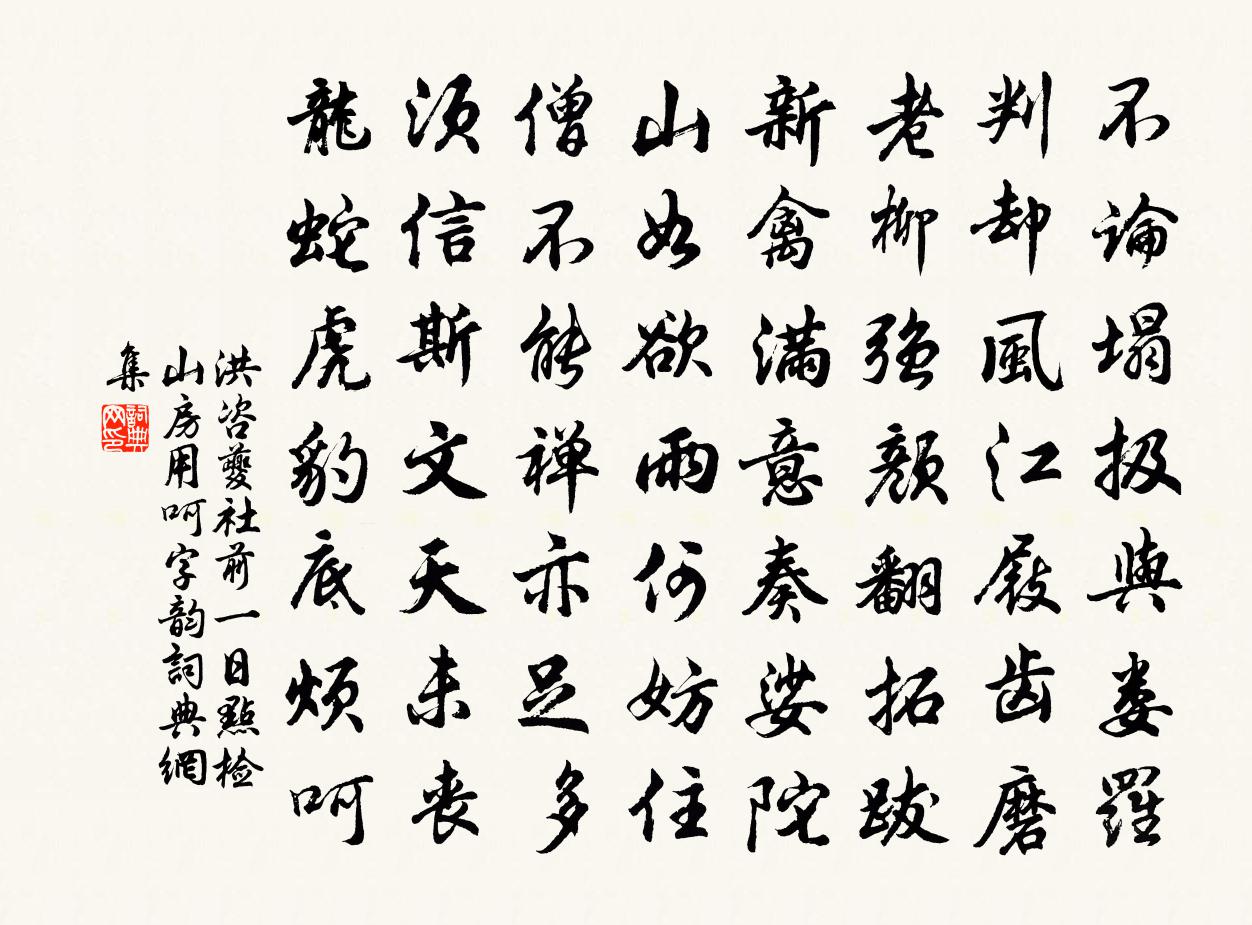 不論塌扱與婁羅
判却風江屐齒磨
老柳強顏翻拓跋
新禽滿意奏娑陀
山如欲雨何妨住
僧不能禅亦足多
須信斯文天未丧
龍蛇虎豹底煩呵
洪咨夔社前一日點檢
山房用呵字韵詞典網
集
詞典網印